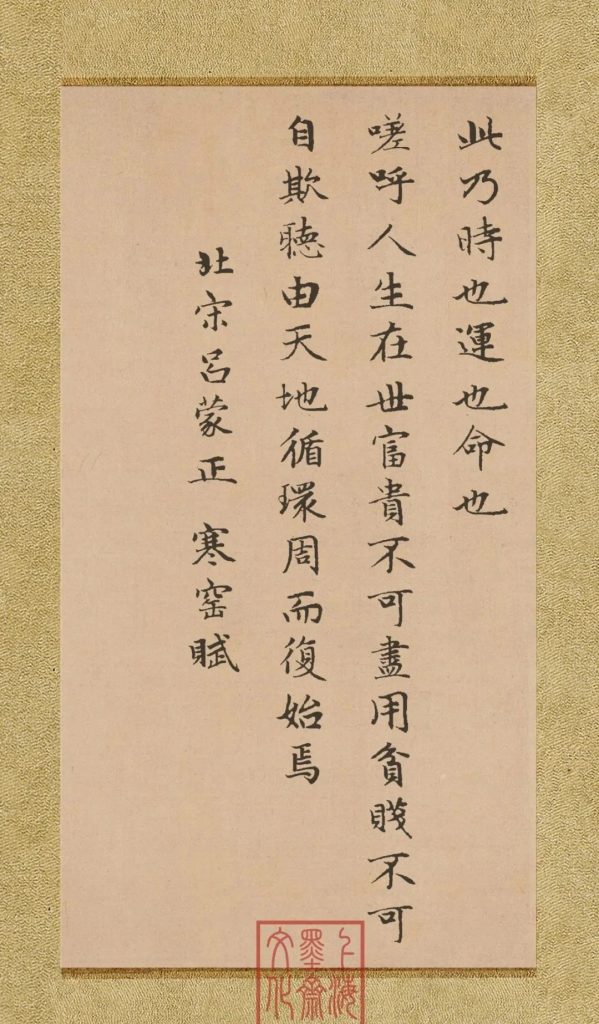 此乃時也運也命也
嗟呼人生在世富貴不可盡用貧賤不可
自欺聽由天地循環周而復始焉
北宋呂蒙正 寒窑賦
上海
墨齋
文化